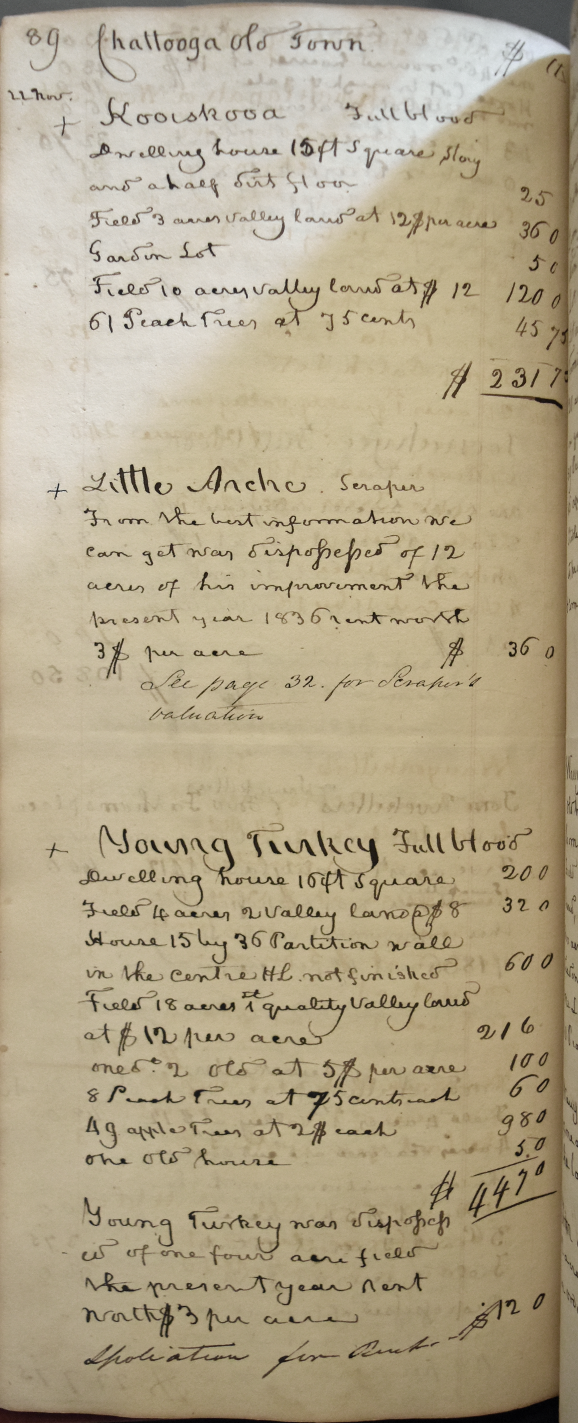 89 Chattooga Old Town. $
22 Nov.
+ Kooiskooa Fullblood
Dwelling house 15 ft Square Story
and a half dirt floor 25
Field 3 acres valley land at 12$ per acre 36 0
Garden Lot 5 0
Field 10 acres valley land at $ 12 120 0
61 Peach Trees at 75 cents 45 75
$ 231 75
+ Little Arche. Scraper
From the best information we
can get was dispossessed of 12
acres of his improvement the
present year 1836 rent worth
3$ per acre $ 36 0
See page 32. for Scraper's
valuation
+ Young Turkey Fullblood
Dwelling house 16ft Square 20 0
Field 4 acres 2 Valley land @ $8 32 0
House 15 by 36 Partition wall
in the centre HL. not finished 60 0
Field 18 acres 1st quality Valley land
at $12 per acre 216
one do. 2 old at 5$ per acre 10 0
8 Peach Trees at 75 cents each 6 0
49 apple Trees at 2$ each 98 0
one old house 5.0
$ 447 0
Young Turkey was dispossess
ed of one four acre field
the present year Rent
worth $3 per acre $12 0
Spoliation for